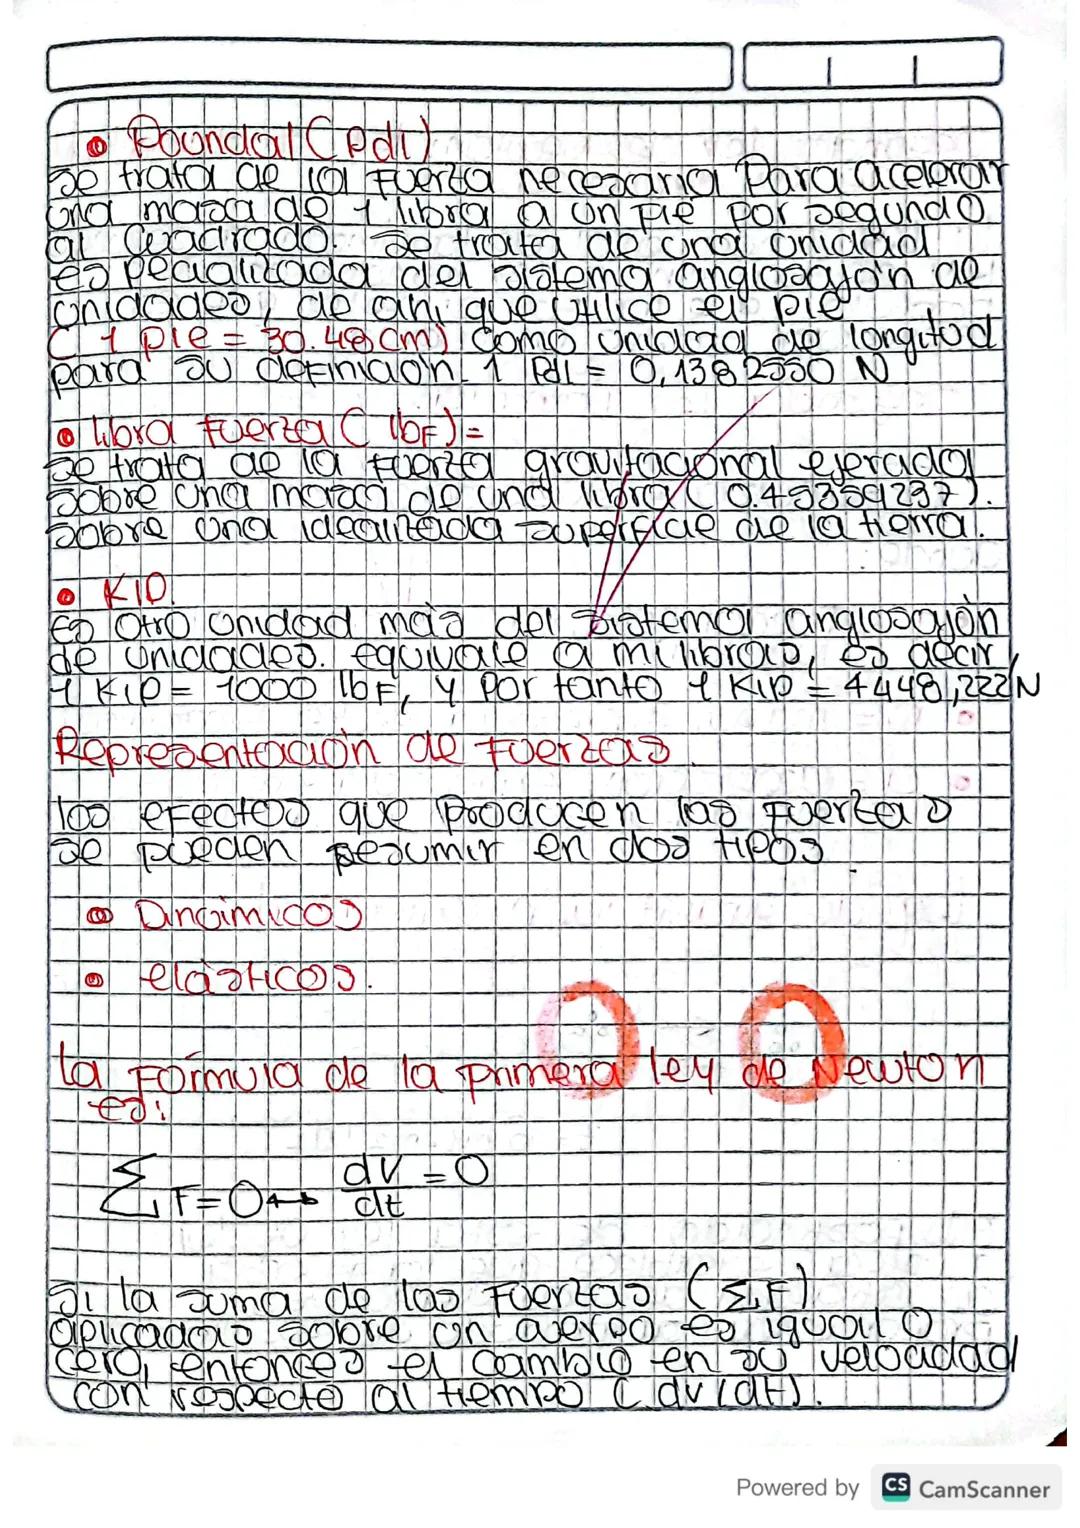 • Poundal (Pdl)
Se trata de la fuerza necesaria Para aceleron
una masa de 1 libra a un pie por segundo
al Cuadrado. Se trata de una unidad
especializada del sistema anglosajón de
unidades, de ahi que utilice el pie
(1 pie = 30.48cm) como unidad de longitud
para su definición. 1 Pdl = 0,1382550 N
• libra fuerza (lbF)=
Se trata de la fuerza gravitacional ejercida
sobre una masa de una libra (0.45359237).
sobre una idealizada superficie de la tierra.
• KIP.
Es Otro unidad más del sistema anglosajón
de unidades. equivale a mil libras, es decir,
1 KIP = 1000 lbF, y por tanto 1 KIP = 4448,222N
Representación de Fuerzas
los efectos que Producen las Fuerzas
se pueden resumir en dos tipos.
• Dinámicos
• elásticos.
La Fórmula de la primera ley de Newton
es:
∑F=0↔ dv/dt = 0
Si la suma de las Fuerzas (∑F)
aplicadas sobre un cuerpo es igual O
cero, entonces el cambio en su velocidad
con respecto al tiempo (dv/dt).
Powered by CS CamScanner